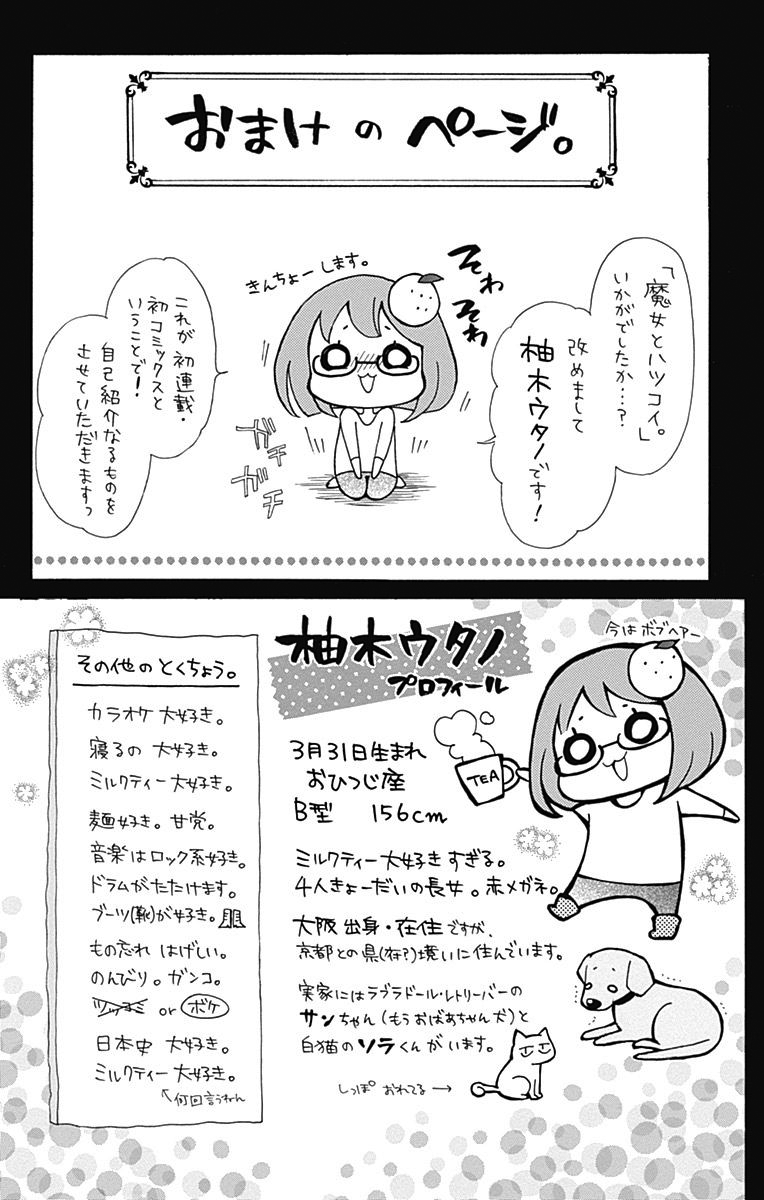 おまけのページ。
「魔女とハツコイ。」
いかがでしたか…?
改めまして
柚木ウタノです!
そわ
そわ
きんちょーします。
ガチ
ガチ
これが初連載・
初コミックスと
いうことで!
自己紹介なるものを
させていただきますっ
柚木ウタノ
プロフィール
今はボブヘアー
TEA
3月31日生まれ
おひつじ座
B型 156cm
ミルクティー大好きすぎる。
4人きょーだいの長女。赤メガネ。
大阪出身・在住ですが、
京都との県(府?)境いに住んでいます。
実家にはラブラドール・レトリーバーの
サンちゃん(もうおばあちゃん犬)と
白猫のソラくんがいます。
しっぽ おれてる→
その他のとくちょう。
カラオケ大好き。
寝るの大好き。
ミルクティー大好き。
麺好き。甘党。
音楽はロック系好き。
ドラムがたたけます。
ブーツ(靴)が好き。
もの忘れはげしい。
のんびり。ガンコ。
ツッコミ or ボケ
日本史大好き。
ミルクティー大好き。
↖何回言うねん